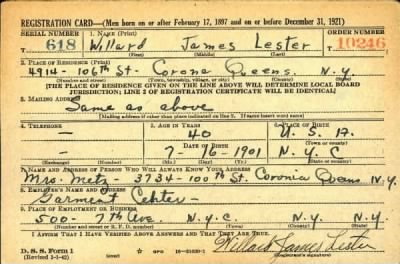 REGISTRATION CARD—(Men born on or after February 17, 1897 and on or before December 31, 1921)
SERIAL NUMBER 1. NAME (Print) ORDER NUMBER
618 Willard James Lester 10246
(First) (Middle) (Last)
2. PLACE OF RESIDENCE (Print)
4914-106th St. Corona Queens. N.Y.
(Number and street) (Town, township, village, or city) (County) (State)
[THE PLACE OF RESIDENCE GIVEN ON THE LINE ABOVE WILL DETERMINE LOCAL BOARD
JURISDICTION; LINE 2 OF REGISTRATION CERTIFICATE WILL BE IDENTICAL]
3. MAILING ADDRESS
Same as above
[Mailing address if other than place indicated on line 2. If same insert word same]
4. TELEPHONE 5. AGE IN YEARS 6. PLACE OF BIRTH
— 40 U.S.A.
DATE OF BIRTH
— 7-16-1901 N.Y.C
(Exchange) (Number) (Mo.) (Day) (Yr.) (State or country)
7. NAME AND ADDRESS OF PERSON WHO WILL ALWAYS KNOW YOUR ADDRESS
Mrs. Metz - 3734-100th St. Coronia Queens N.Y.
8. EMPLOYER'S NAME AND ADDRESS
Garment Center -
9. PLACE OF EMPLOYMENT OR BUSINESS
500- 7th Ave. N.Y.C. N.Y. N.Y.
(Number and street or R. F. D. number) (Town) (County) (State)
I AFFIRM THAT I HAVE VERIFIED ABOVE ANSWERS AND THAT THEY ARE TRUE.
D. S. S. Form 1
(Revised 1-1-42) (over) GPO 16-21630-1
Willard James Lester
(Registrant's signature)